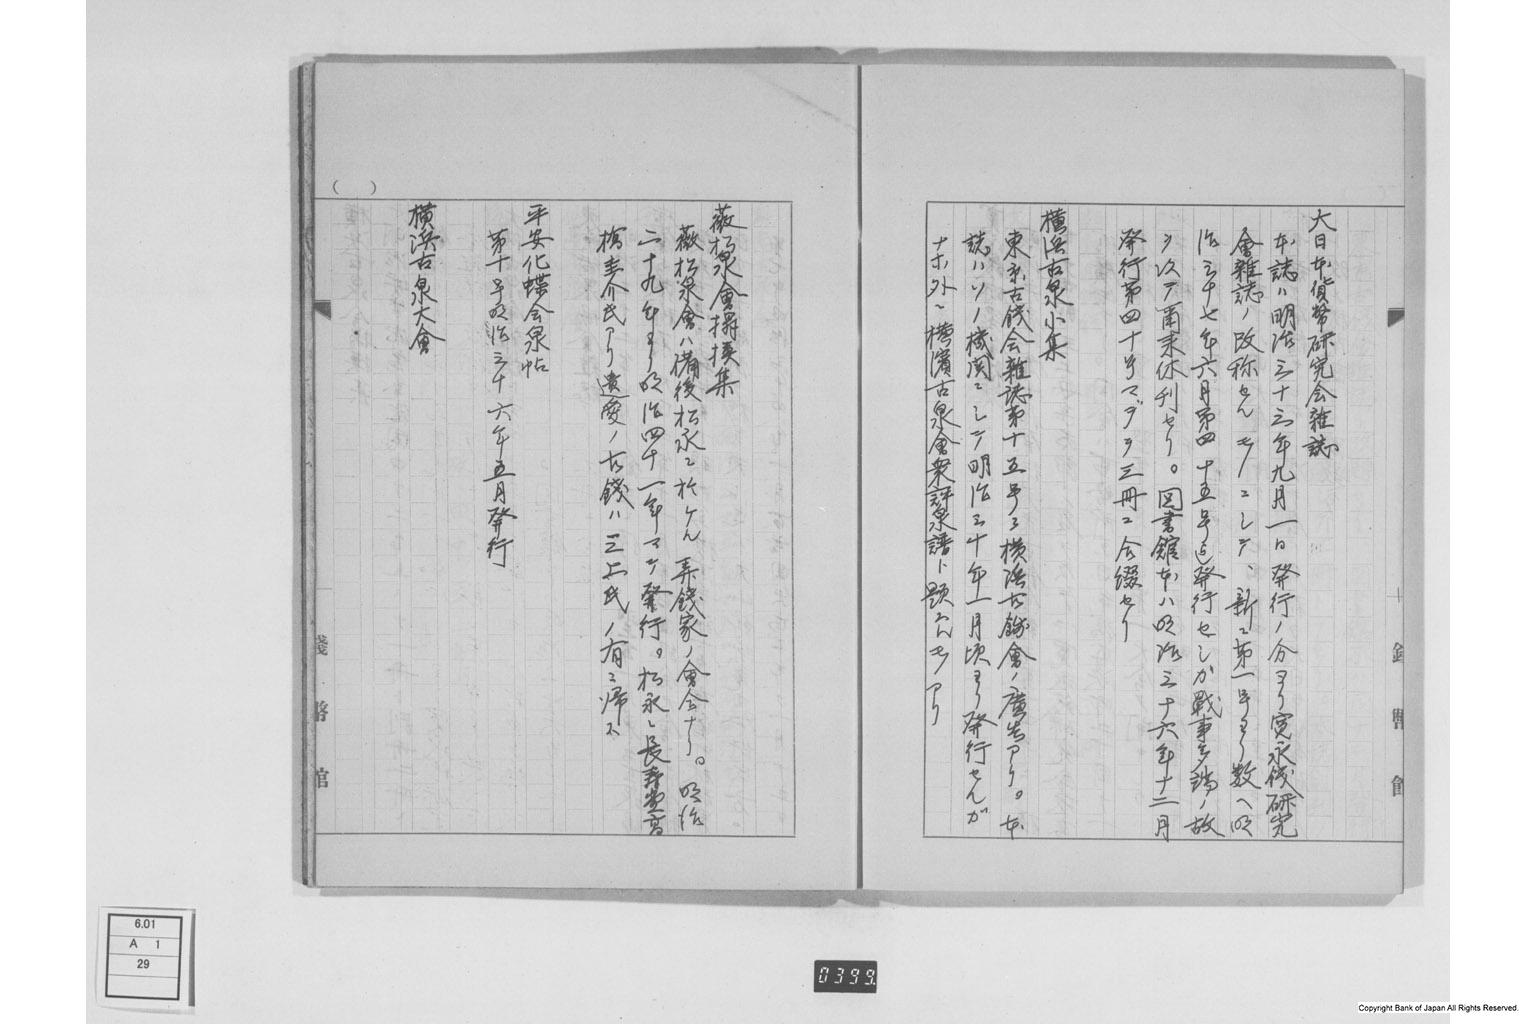 大日本貨幣研究会雑誌
本誌ハ明治三十三年九月一日発行ノ分ヨリ寛永銭研究
會雑誌ノ改称セルモノニシテ、新ニ第一号ヨリ数ヘ明
治三十七年六月第四十五号迄発行セシガ戦事多端ノ故
ヲ以テ爾来休刊セリ。図書館本ハ明治三十六年十二月
発行第四十号マデヲ三冊ニ合綴セリ
横浜古泉小集
東京古銭会雑誌第十五号ニ横浜古銭會ノ廣告アリ。本
誌ハソノ機関ニシテ明治三十年一月頃ヨリ発行セルガ
ナホ外ニ横濱古泉會衆評泉譜ト題スルモノアリ
薇松泉會搨摸集
薇松泉會ハ備後松永ニ於ケル弄銭家ノ會合ナリ。明治
二十九年ヨリ明治四十一年マデ発行。松永ニ長寿堂高
橋 介氏アリ遺愛ノ古錢ハ三上氏ノ有ニ帰ス
平安化蝶会泉帖
第十号明治三十六年五月発行
横浜古泉大會
( )
銭幣館
銭幣館
6.01
A 1
29
0399
Copyright Bank of Japan All Rights Reserved.